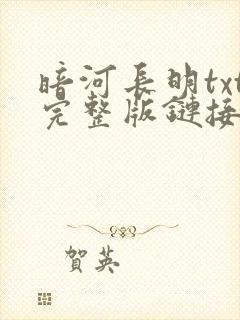 暗河長明txt
完整版鏈接
賀英